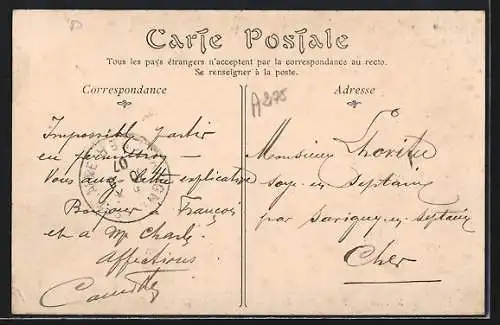 Carte Postale
Tous les pays étrangers n'acceptent par la correspondance au recto.
Se renseigner à la poste.
Correspondance
Adresse
A275
Impossible partir
en permission –
Vous aurez lettre explicative
Bonjour à François
et à Mr Charles.
Affections
Monsieur
Soye-en-Septaine
par Savigny-en-Septaine
Cher
07